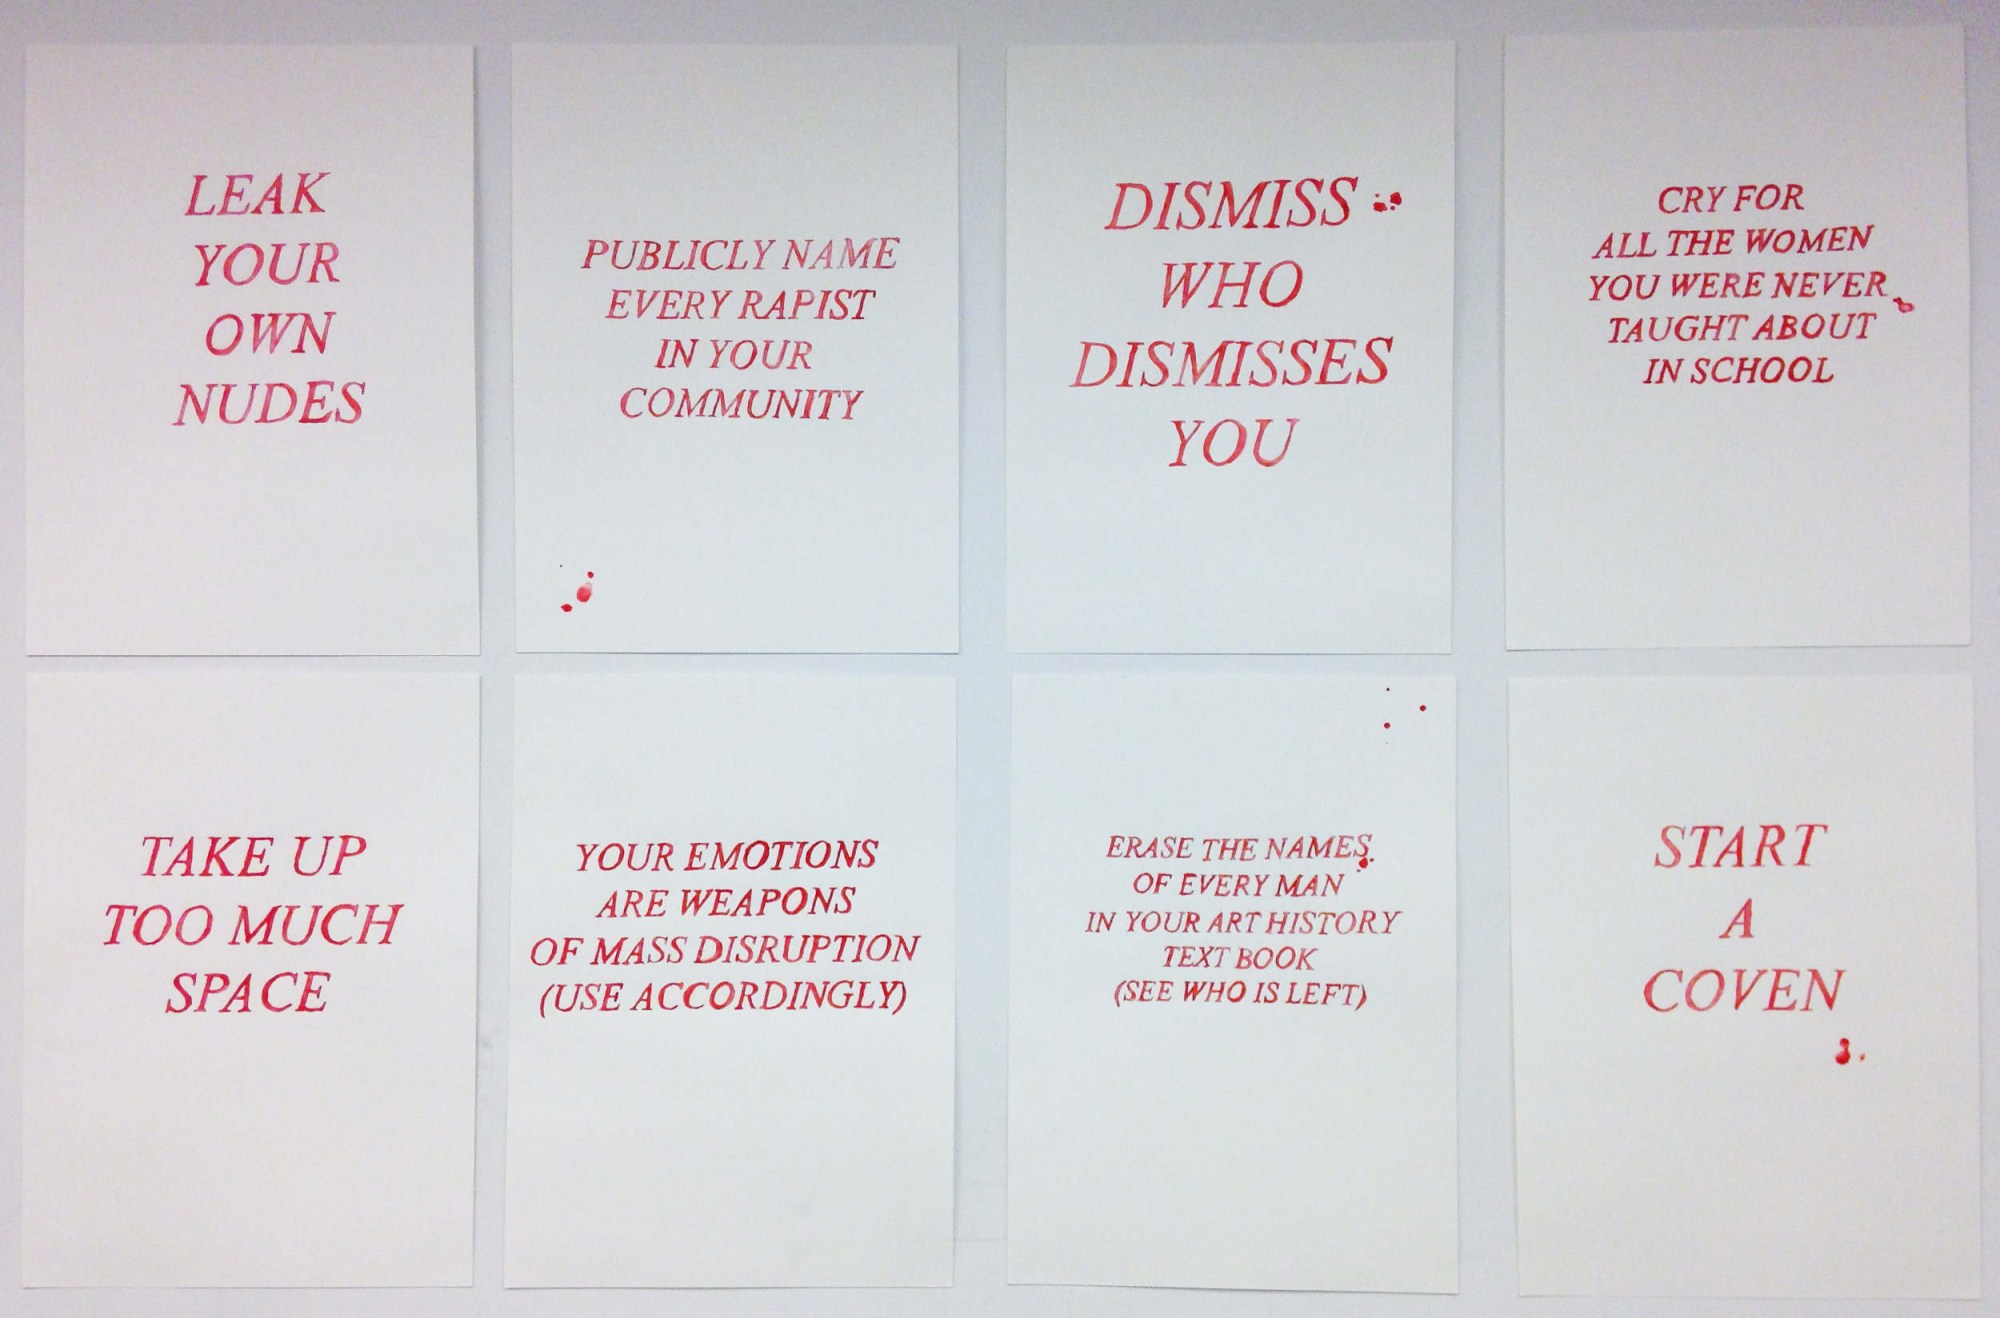 LEAK
YOUR
OWN
NUDES
PUBLICLY NAME
EVERY RAPIST
IN YOUR
COMMUNITY
DISMISS
WHO
DISMISSES
YOU
CRY FOR
ALL THE WOMEN
YOU WERE NEVER
TAUGHT ABOUT
IN SCHOOL
TAKE UP
TOO MUCH
SPACE
YOUR EMOTIONS
ARE WEAPONS
OF MASS DISRUPTION
(USE ACCORDINGLY)
ERASE THE NAMES
OF EVERY MAN
IN YOUR ART HISTORY
TEXT BOOK
(SEE WHO IS LEFT)
START
A
COVEN